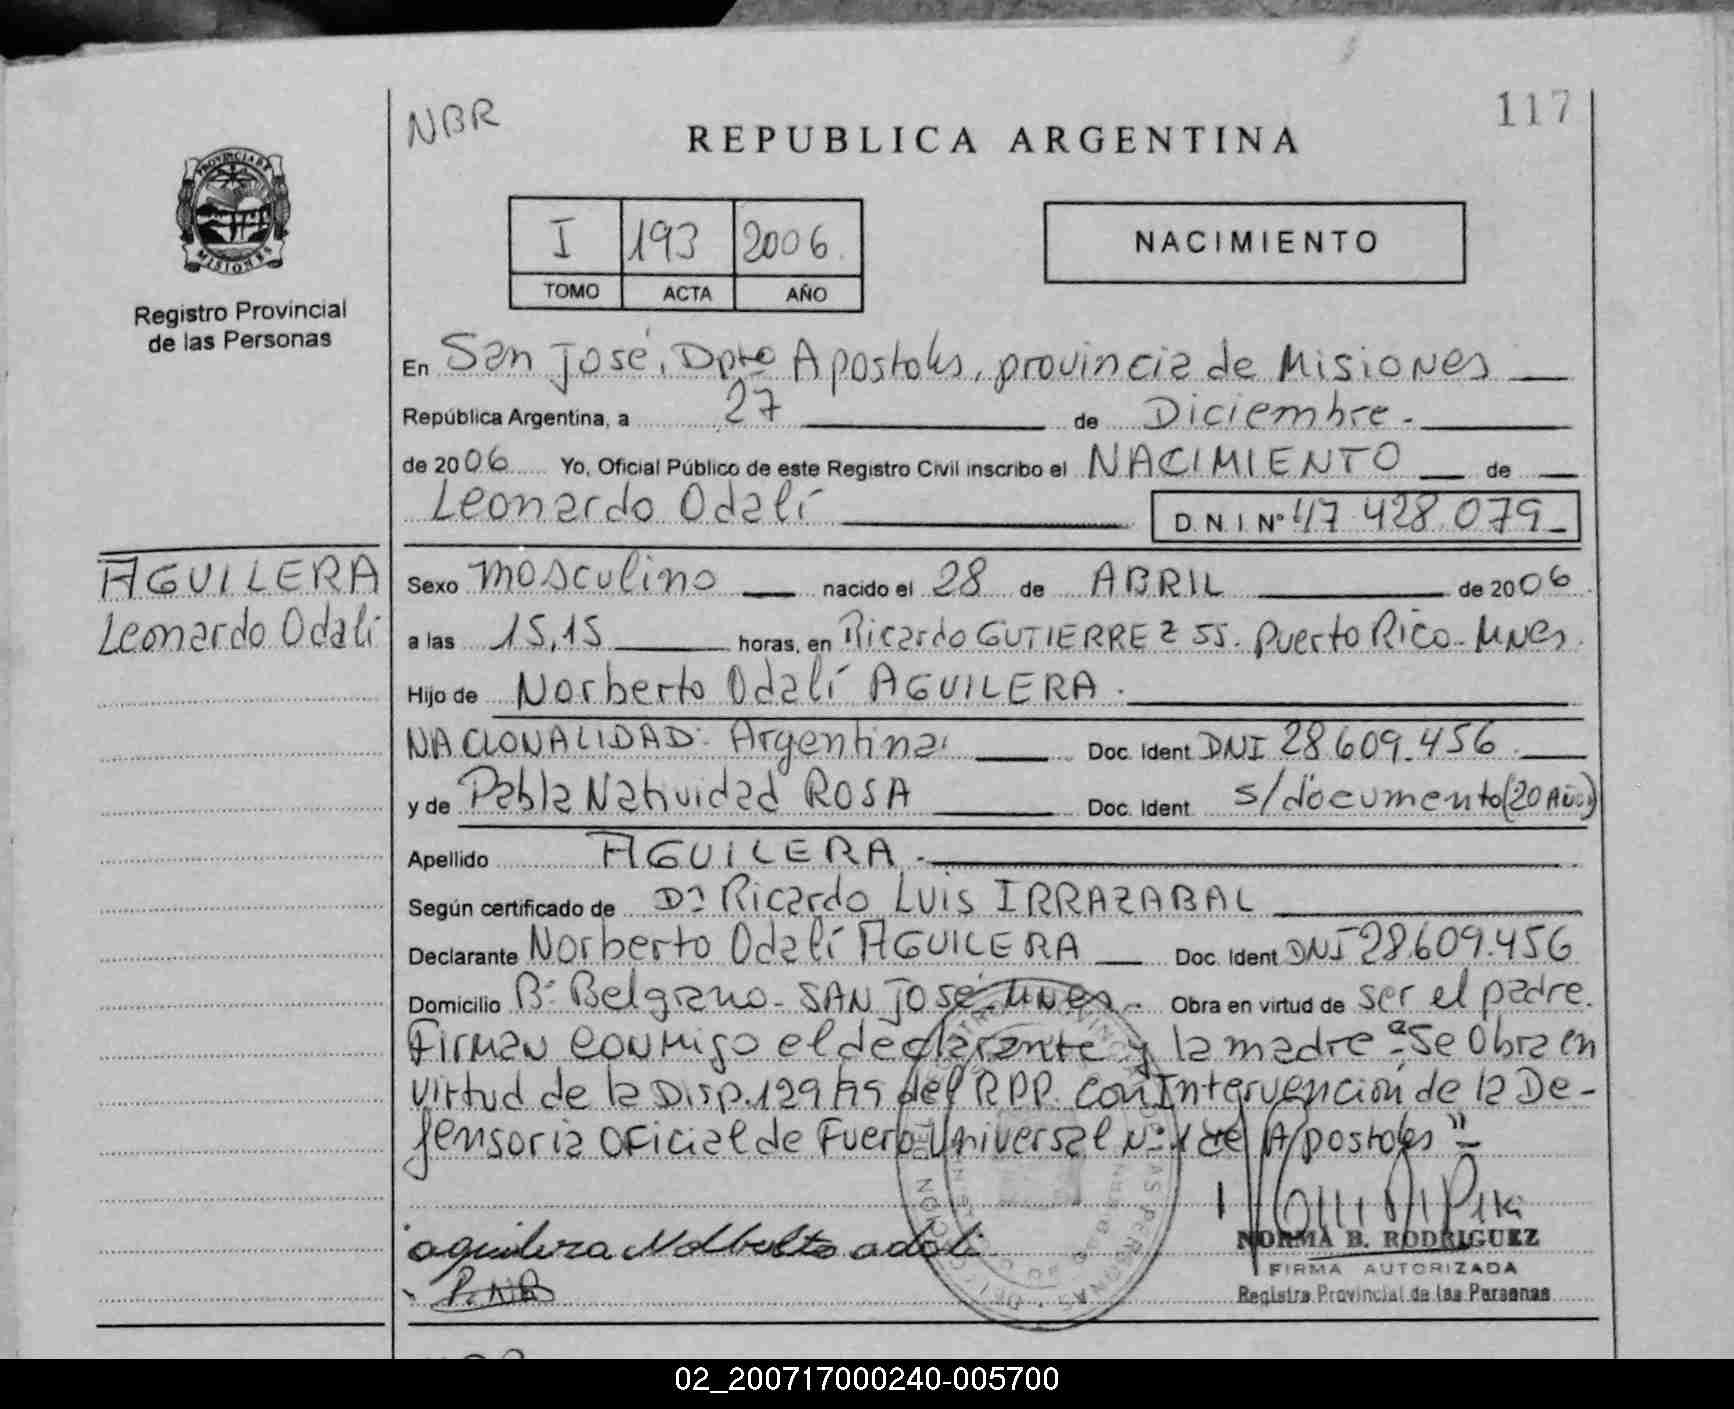 117
NBR
REPUBLICA ARGENTINA
PROVINCIA DE
MISIONES
I 193 2006
TOMO ACTA AÑO
NACIMIENTO
Registro Provincial
de las Personas
En San José, Dpto Apostoles, provincia de Misiones
República Argentina, a 27 de Diciembre.
de 2006 Yo, Oficial Público de este Registro Civil inscribo el NACIMIENTO de
Leonardo Odalí D.N.I. Nº 47 428 079
AGUILERA
Leonardo Odalí
Sexo masculino nacido el 28 de ABRIL de 2006
a las 15,15 horas, en Ricardo GUTIERREZ 55. Puerto Rico - Mnes.
Hijo de Norberto Odalí AGUILERA.
NACIONALIDAD: Argentina. Doc. Ident DNI 28.609.456
y de Pabla Natividad ROSA Doc. Ident. s/documento (20 Años)
Apellido AGUILERA.
Según certificado de Dr Ricardo Luis IRRAZABAL
Declarante Norberto Odalí AGUILERA Doc. Ident DNI 28.609.456
Domicilio Bº Belgrano - SAN José - Mnes. Obra en virtud de ser el padre.
Firman conmigo el declarante y la madre "Se Obra en
virtud de la Disp. 129/99 del RPP. con Intervención de la De-
fensoria Oficial de Fuero Universal Nº 1 de Apostoles"
aguilera Nolberto adali
P. NR
NORMA B. RODRIGUEZ
FIRMA AUTORIZADA
Registro Provincial de las Personas
02_200717000240-005700